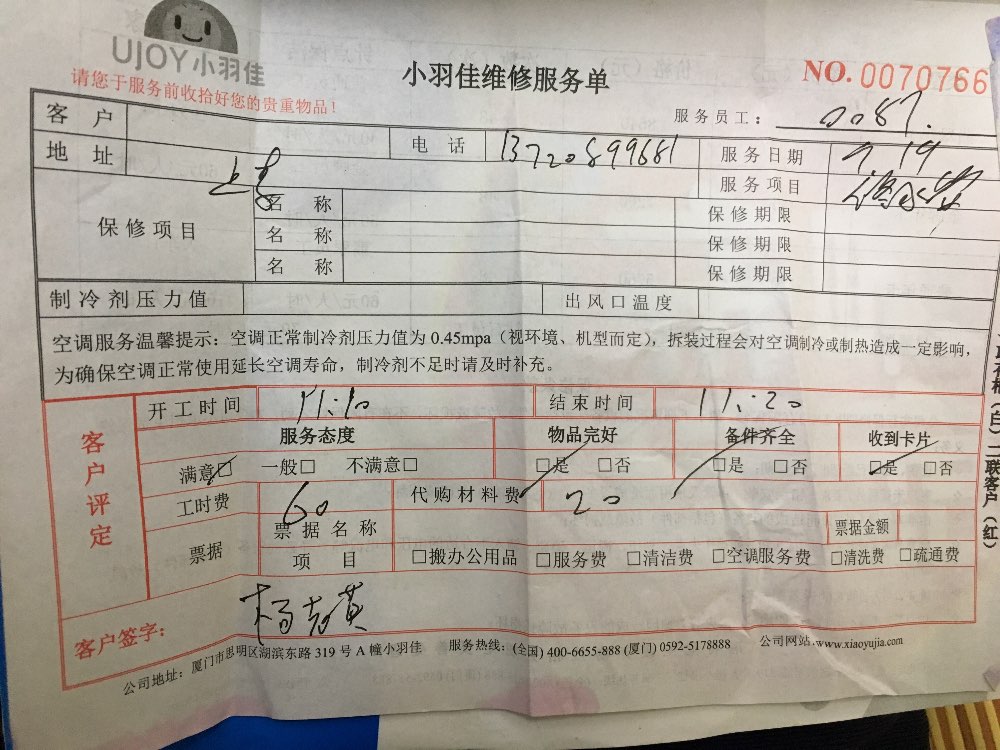 UJOY小羽佳
小羽佳维修服务单
NO. 0070766
请您于服务前收拾好您的贵重物品！
服务员工： 0087.
客 户
电 话 13720899681 服务日期 7.19
地 址
服务项目
保修项目 名 称 保修期限
名 称 保修期限
名 称 保修期限
制冷剂压力值 出风口温度
空调服务温馨提示：空调正常制冷剂压力值为 0.45mpa（视环境、机型而定），拆装过程会对空调制冷或制热造成一定影响，
为确保空调正常使用延长空调寿命，制冷剂不足时请及时补充。
客户评定
开工时间 11:10 结束时间 11:20
服务态度 物品完好 备件齐全 收到卡片
满意□ 一般□ 不满意□ □是 □否 □是 □否 □是 □否
工时费 60 代购材料费 20
票据 票据名称 票据金额
项 目 □搬办公用品 □服务费 □清洁费 □空调服务费 □清洗费 □疏通费
客户签字：
公司地址：厦门市思明区湖滨东路 319 号 A 幢小羽佳 服务热线：(全国) 400-6655-888 (厦门) 0592-5178888 公司网站.www.xiaoyujia.com
（白）二联客户（红）